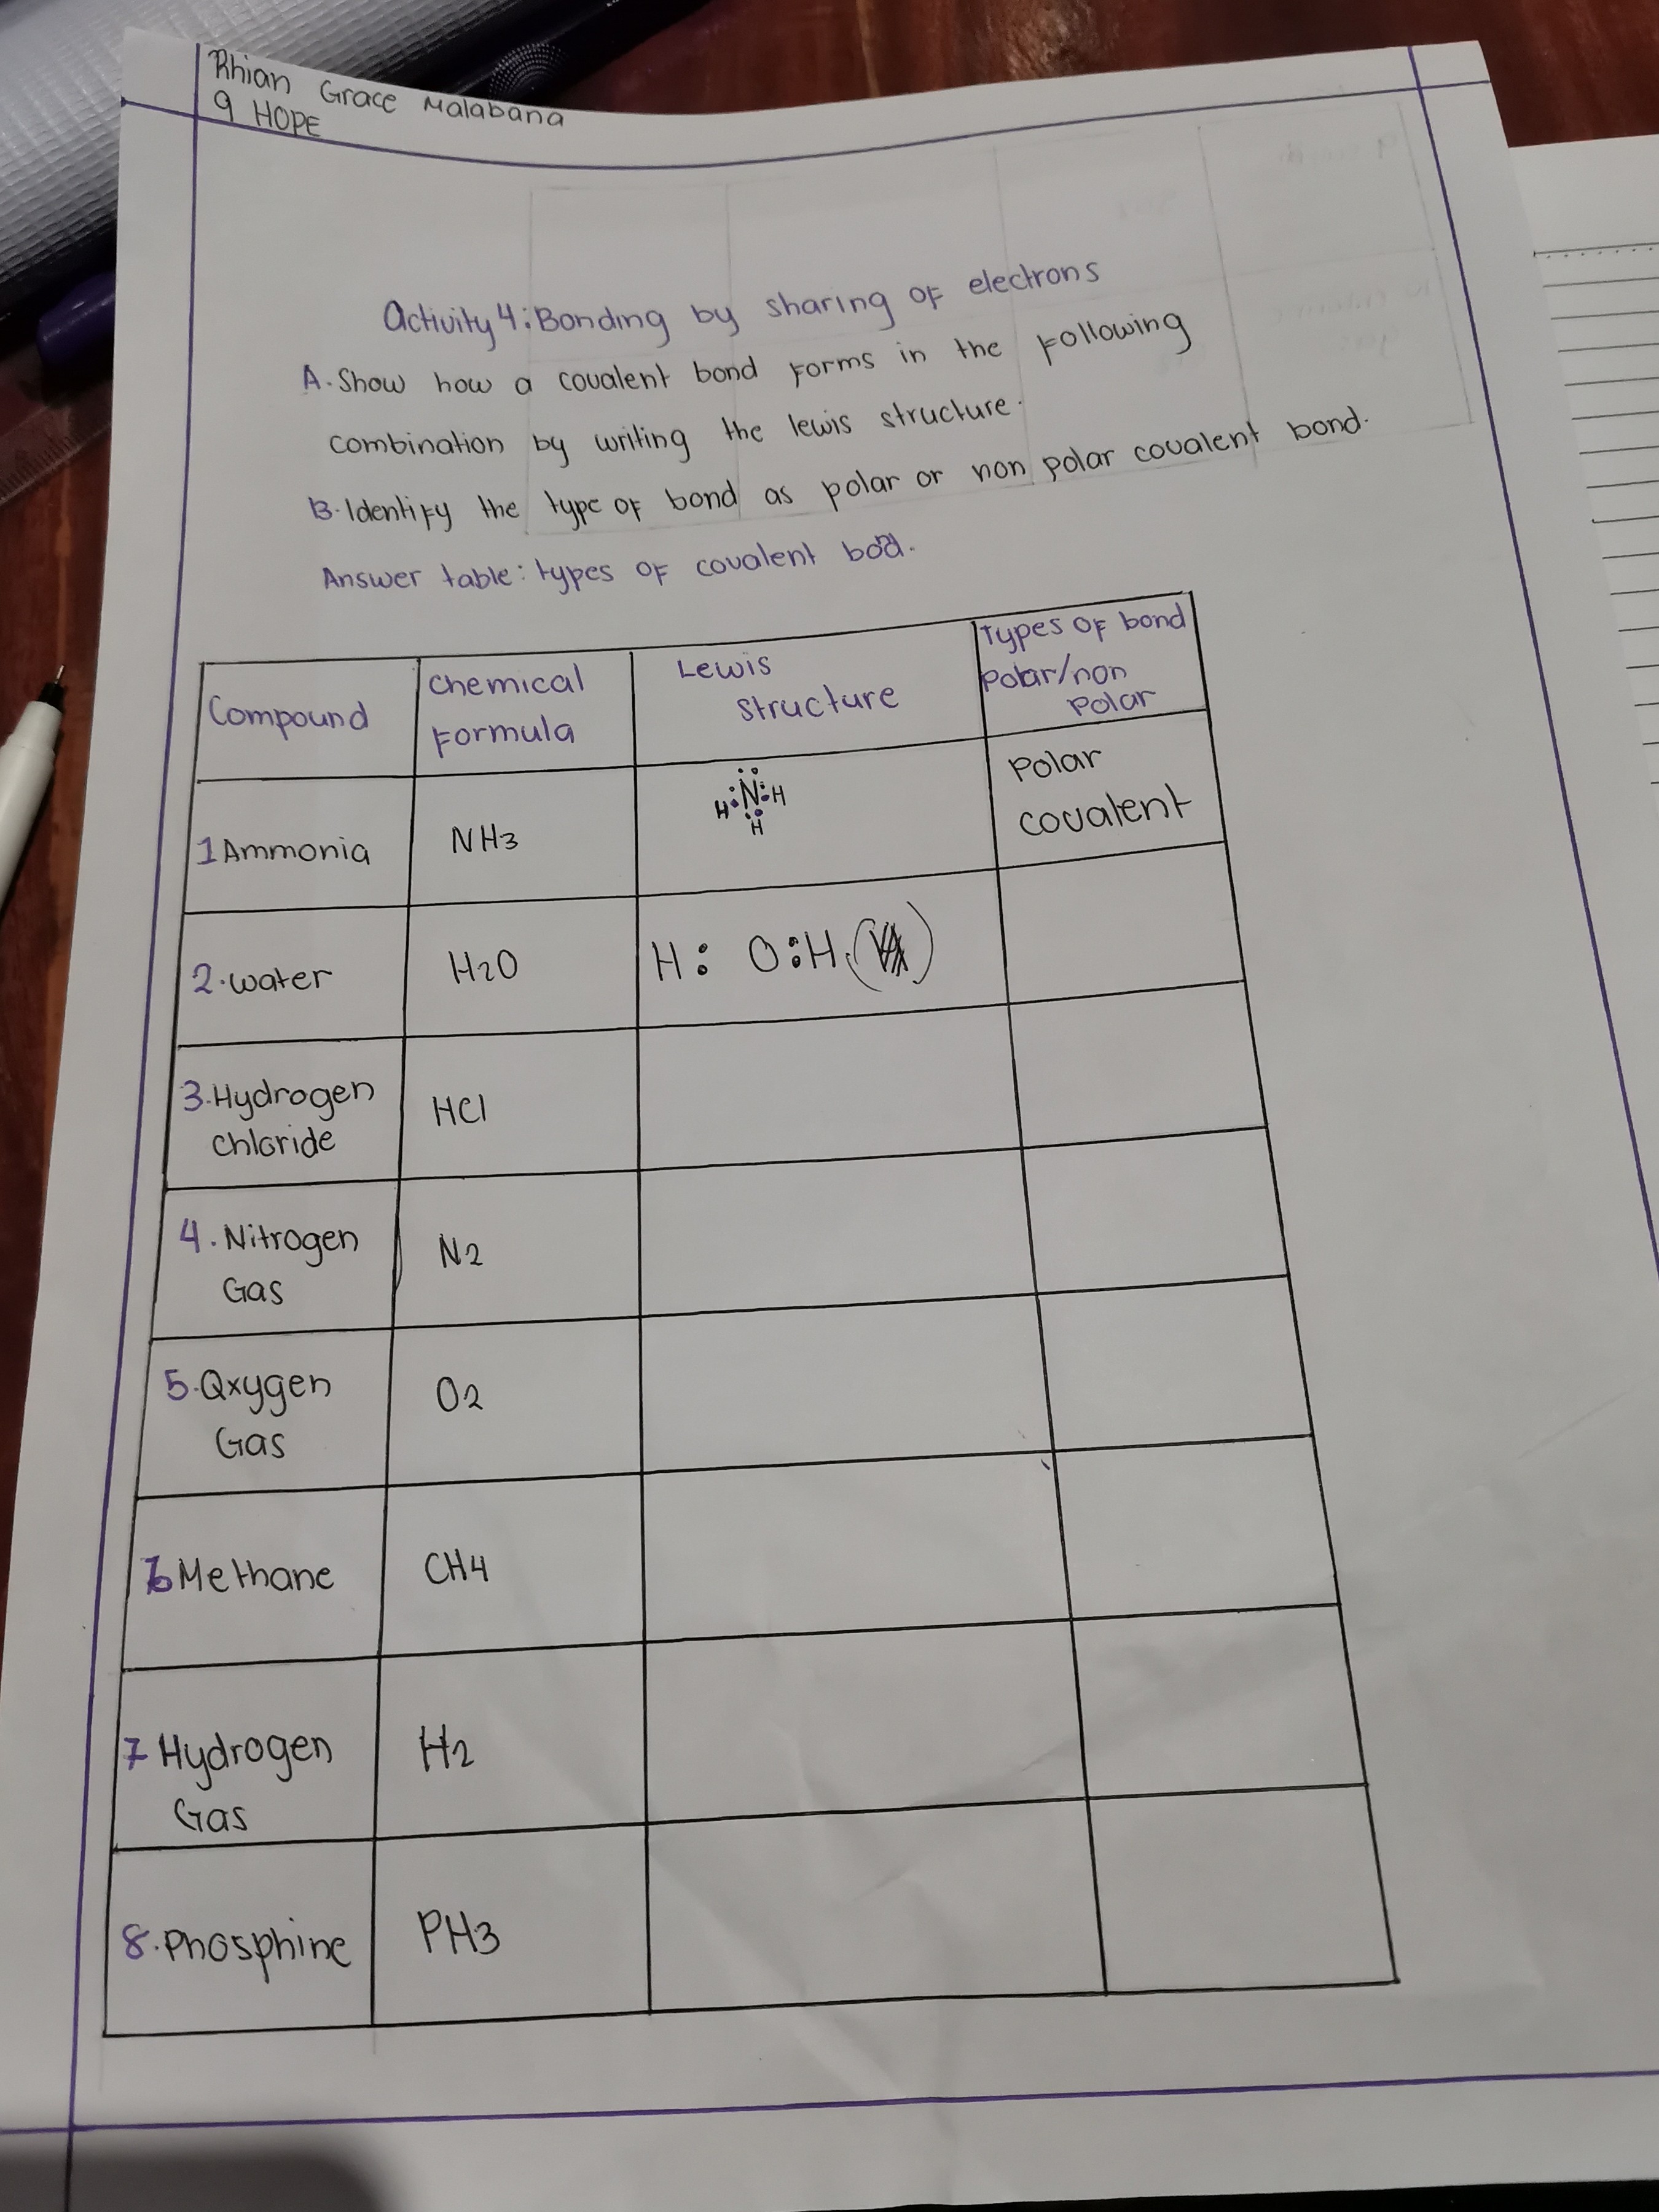 Rhian Grace Malabana
9 HOPE
Activity 4: Bonding by sharing of electrons
A. Show how a covalent bond forms in the following
combination by writing the lewis structure.
B. Identify the type of bond as polar or non polar covalent bond.
Answer table: types of covalent bod.
Compound
Chemical
Formula
Lewis
structure
Types of bond
polar/non
polar
1 Ammonia
NH3
H:N:H
H
Polar
covalent
2. water
H2O
H: O:H
3. Hydrogen
chloride
HCl
4. Nitrogen
Gas
N2
5. Oxygen
Gas
O2
6 Methane
CH4
7 Hydrogen
Gas
H2
8. Phosphine
PH3